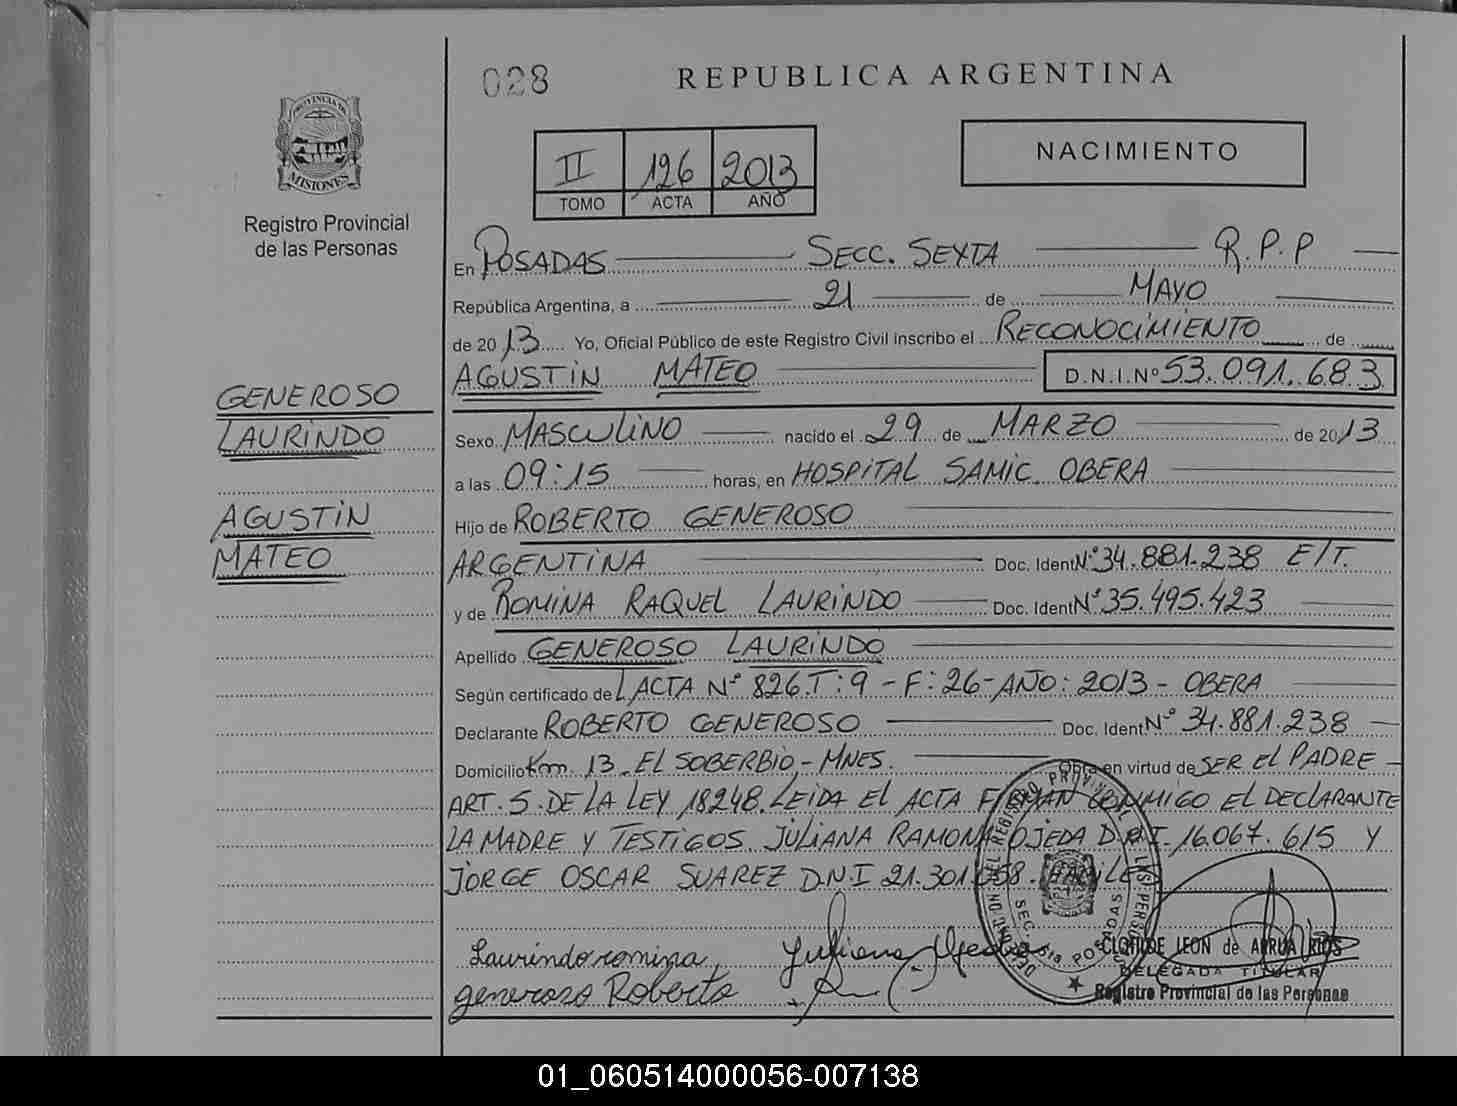 028
REPUBLICA ARGENTINA
PROVINCIA DE
MISIONES
Registro Provincial
de las Personas
II 126 2013
TOMO ACTA AÑO
NACIMIENTO
En POSADAS SECC. SEXTA R.P.P
República Argentina, a 21 de MAYO
de 2013 Yo, Oficial Público de este Registro Civil inscribo el RECONOCIMIENTO de
AGUSTIN MATEO D.N.I.Nº 53.091.683
GENEROSO
LAURINDO
AGUSTIN
MATEO
Sexo MASCULINO nacido el 29 de MARZO de 2013
a las 09:15 horas, en HOSPITAL SAMIC OBERA
Hijo de ROBERTO GENEROSO
ARGENTINA Doc. Ident Nº 34.881.238 E/T.
y de ROMINA RAQUEL LAURINDO Doc. Ident Nº 35.495.423
Apellido GENEROSO LAURINDO
Según certificado de L ACTA Nº 826.T:9 - F:26 - AÑO:2013 - OBERA
Declarante ROBERTO GENEROSO Doc. Ident Nº 34.881.238
Domicilio Km. 13 - EL SOBERBIO - MNES. Obra en virtud de SER EL PADRE -
ART. 5. DE LA LEY 18248. LEIDA EL ACTA FIRMAN CONMIGO EL DECLARANTE
LA MADRE Y TESTIGOS JULIANA RAMONA OJEDA D.N.I. 16.067.615 Y
JORGE OSCAR SUAREZ D.N.I 21.301.058. HABILES
Laurindo romina
Juliana Ojeda
generoso Roberto
SEC. 6ta. POSADAS
CLOTILDE LEON de ARRUA RIOS
DELEGADA TITULAR
Registro Provincial de las Personas
01_060514000056-007138